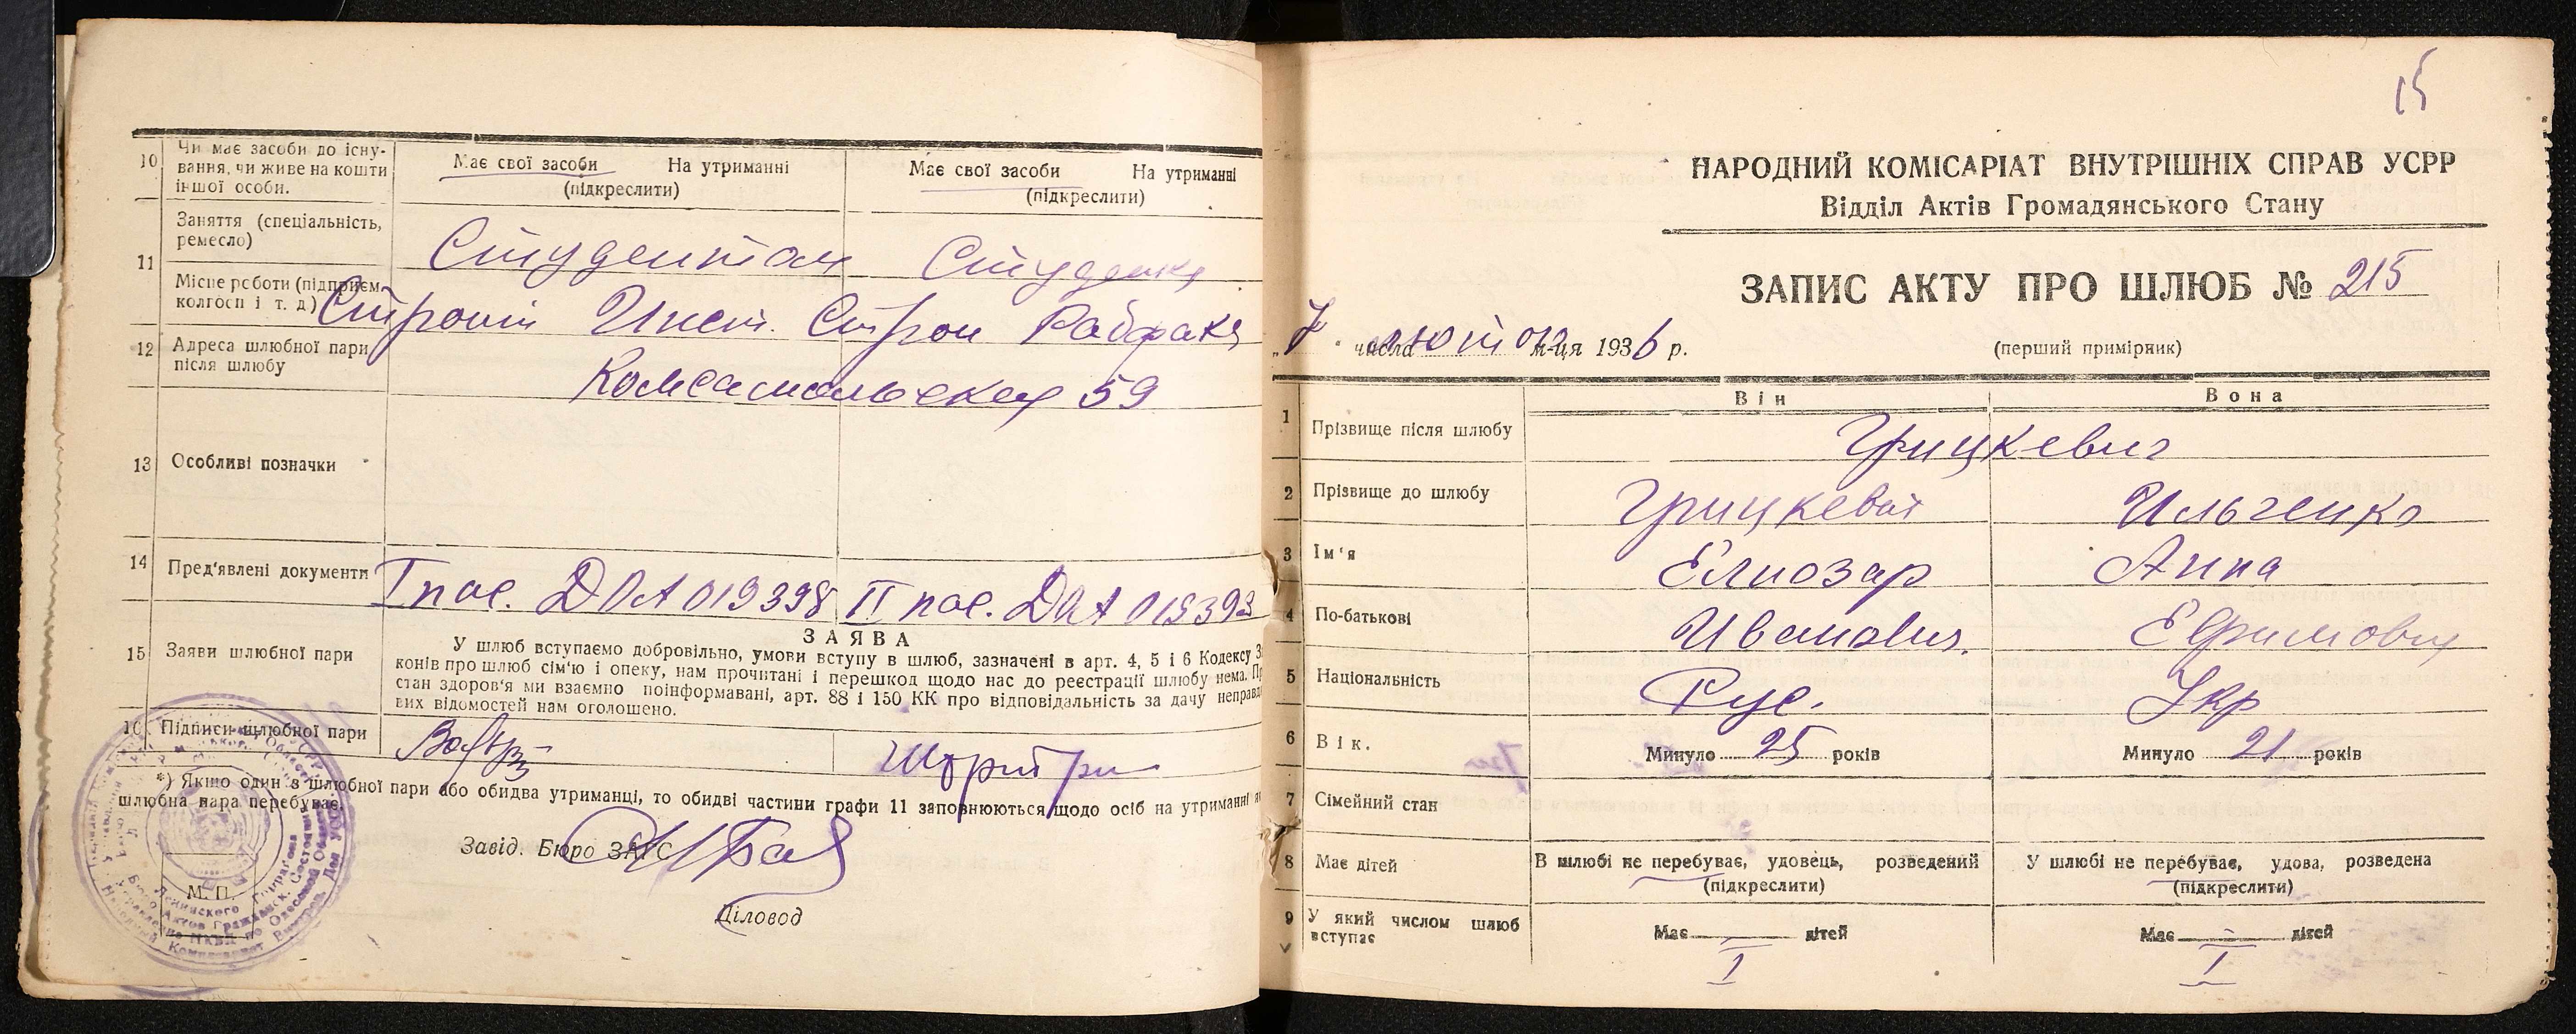 10 Чи має засоби до існу-
вання, чи живе на кошти
іншої особи.
Має свої засоби На утриманні
(підкреслити)
Має свої засоби На утриманні
(підкреслити)
11 Заняття (спеціальність,
ремесло)
Студент Студентка
Місце роботи (підприєм.
колгосп і т. д.)
Строит Инст. Строи Рабфака
12 Адреса шлюбної пари
після шлюбу
Комсомольская 59
13 Особливі позначки
14 Пред'явлені документи
I пас. ДОА 019398 II пас. ДОА 019393
15 Заяви шлюбної пари
ЗАЯВА
У шлюб вступаємо добровільно, умови вступу в шлюб, зазначені в арт. 4, 5 і 6 Кодексу З
конів про шлюб сім'ю і опеку, нам прочитані і перешкод щодо нас до реєстрації шлюбу нема. П
стан здоров'я ми взаємно поінформавані, арт. 88 і 150 КК про відповідальність за дачу неправд
вих відомостей нам оголошено.
16 Підписи шлюбної пари
*) Якщо один з шлюбної пари або обидва утриманці, то обидві частини графи 11 заповнюються щодо осіб на утриманні як
шлюбна пара перебуває.
Завід. Бюро ЗАГС
М. П.
Діловод
15
НАРОДНИЙ КОМІСАРІАТ ВНУТРІШНІХ СПРАВ УСРР
Відділ Актів Громадянського Стану
ЗАПИС АКТУ ПРО ШЛЮБ № 215
„7“ числа лютого м-ця 1936 р.
(перший примірник)
Він Вона
1 Прізвище після шлюбу Грицкевич
2 Прізвище до шлюбу Грицкевич Ильченко
3 Ім'я Елиозар Анна
4 По-батькові Иванович. Ефимовн
5 Національність Рус. Укр
6 Вік. Минуло 25 років Минуло 21 років
7 Сімейний стан
8 Має дітей
В шлюбі не перебуває, удовець, розведений
(підкреслити)
У шлюбі не перебуває, удова, розведена
(підкреслити)
9 У який числом шлюб
вступає
Має - дітей Має - дітей
I I